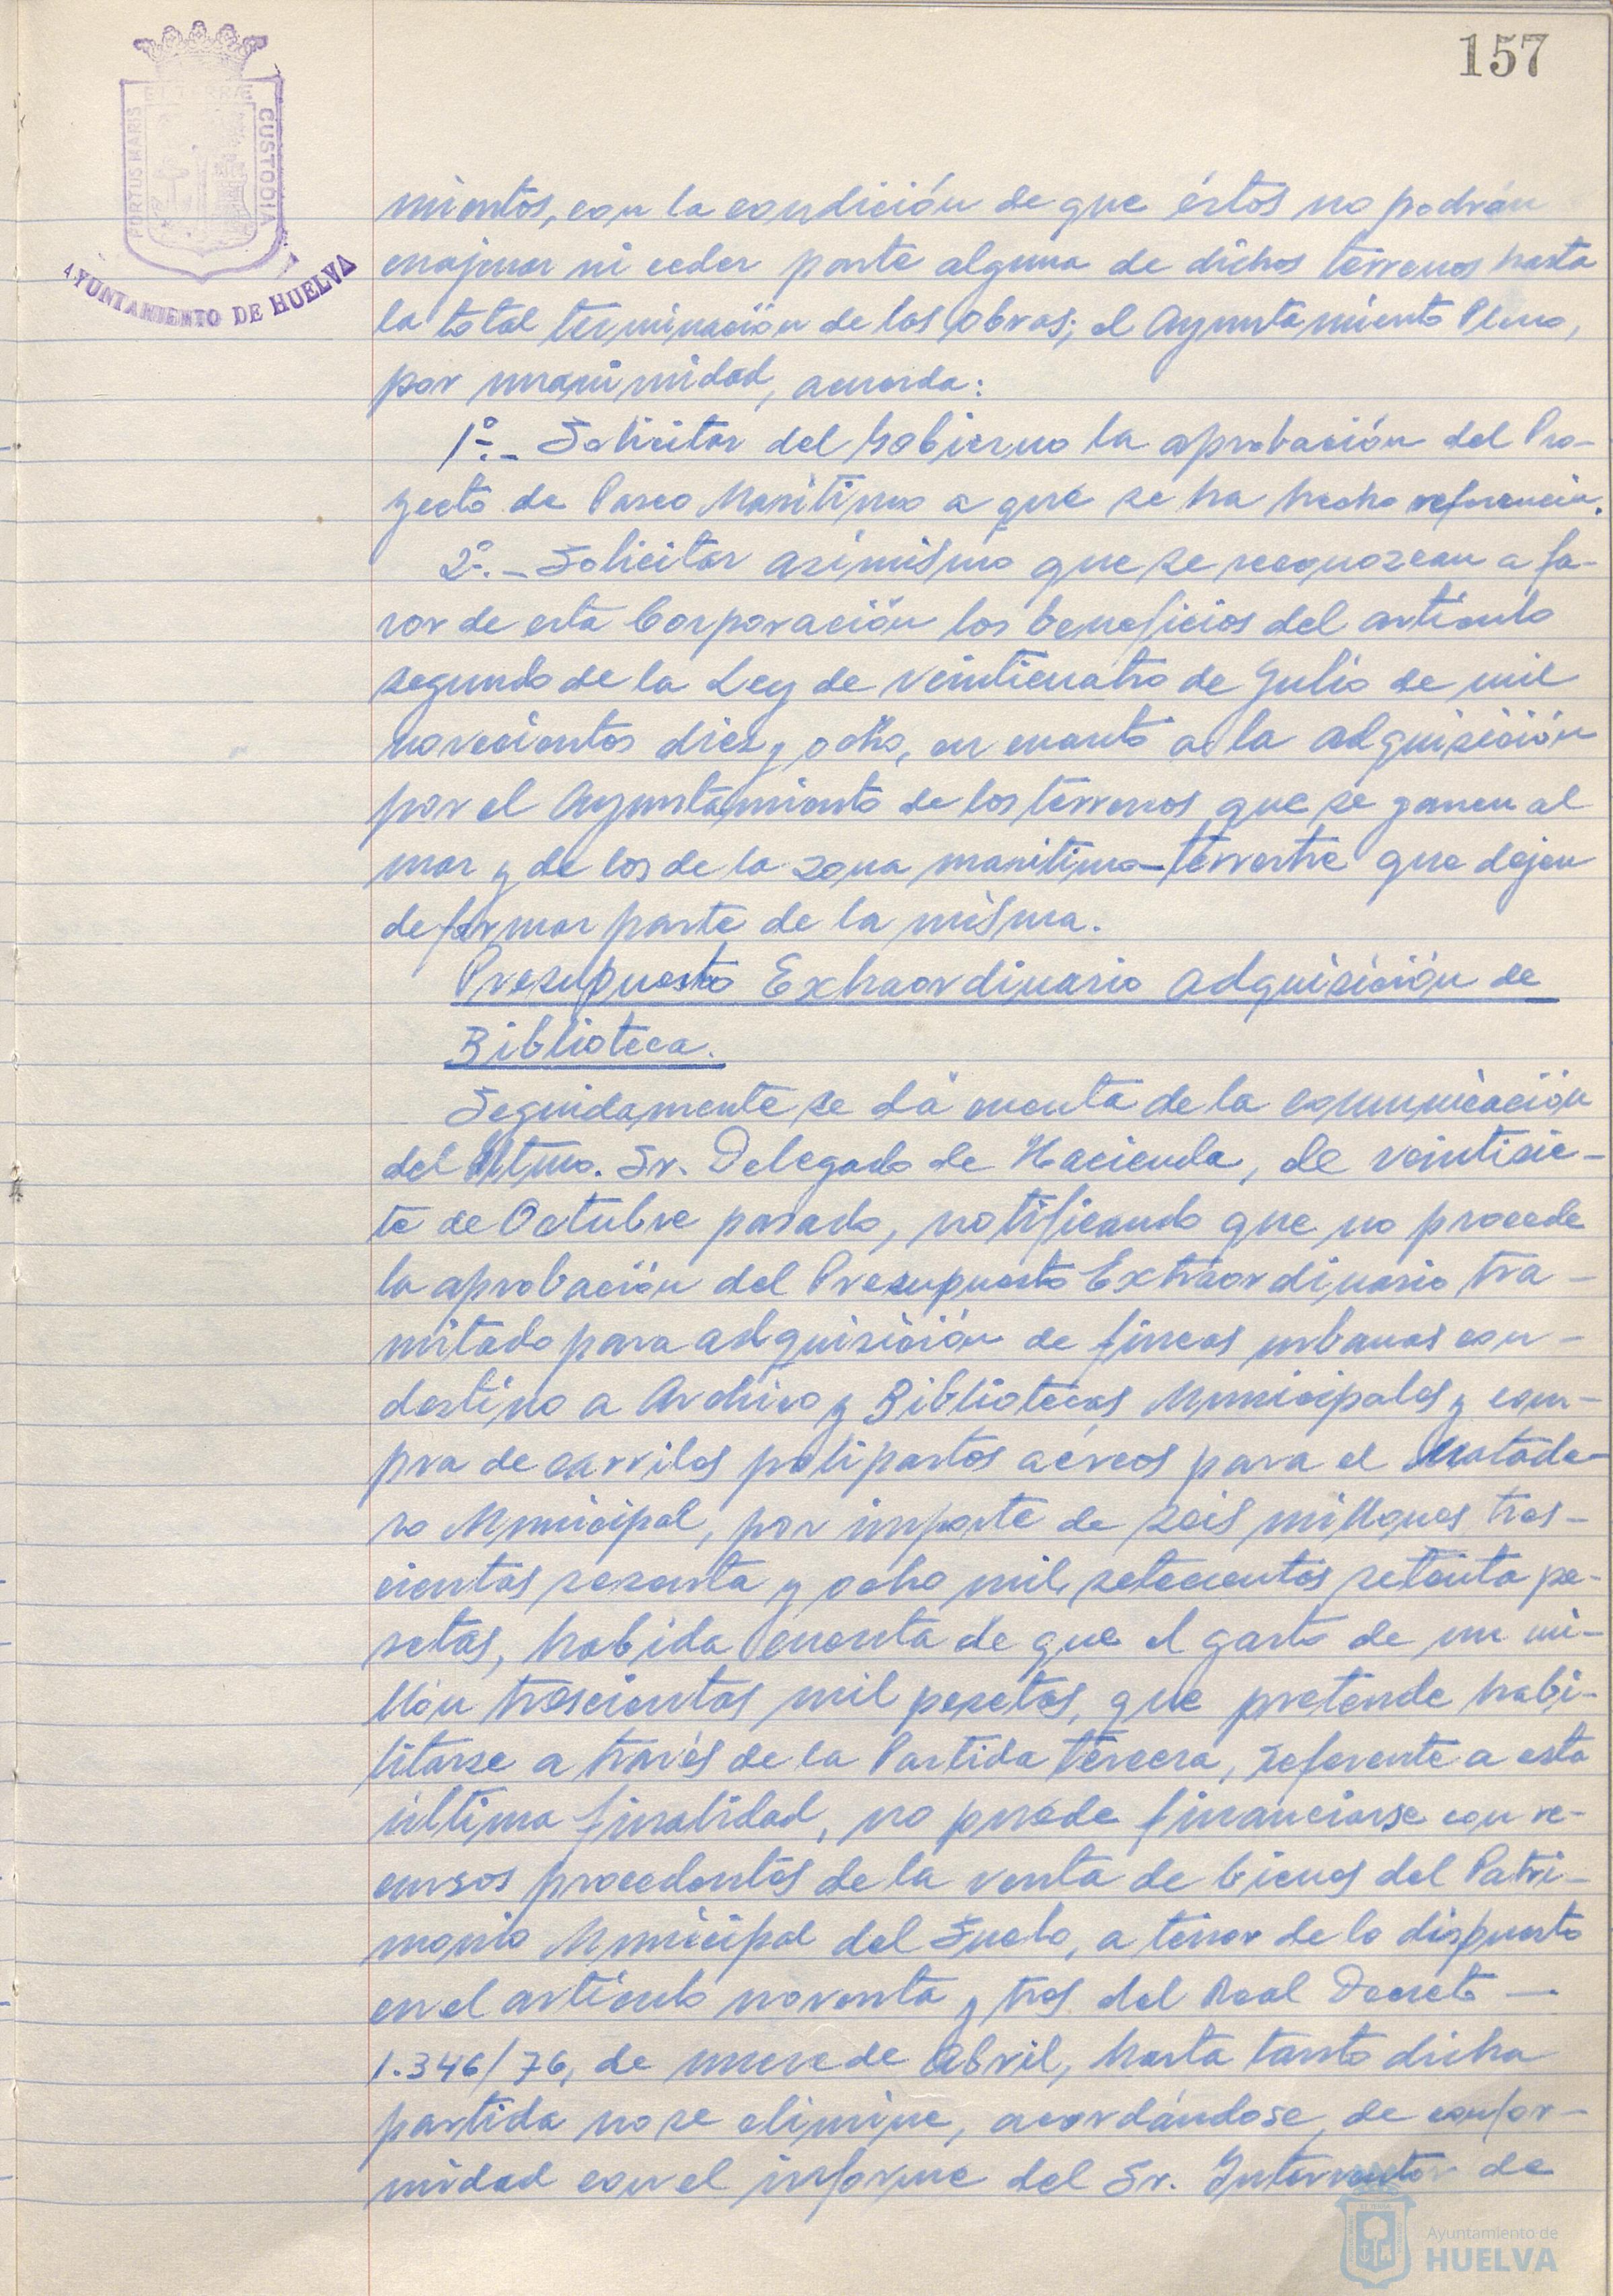 157
ET TERRÆ
PORTUS MARIS
CUSTODIA
AYUNTAMIENTO DE HUELVA
mientos, con la condición de que éstos no podrán
enajenar ni ceder parte alguna de dichos terrenos hasta
la total terminación de las obras; el Ayuntamiento Pleno,
por unanimidad, acuerda:
1º.- Solicitar del Gobierno la aprobación del Pro-
yecto de Paseo Marítimo a que se ha hecho referencia.
2º.- Solicitar asimismo que se reconozcan a fa-
vor de esta Corporación los beneficios del artículo
segundo de la Ley de veinticuatro de Julio de mil
novecientos diez y ocho, en cuanto a la adquisición
por el Ayuntamiento de los terrenos que se ganen al
mar y de los de la zona marítimo-terrestre que dejen
de formar parte de la misma.
Presupuesto Extraordinario adquisición de
Biblioteca.
Seguidamente se dá cuenta de la comunicación
del Iltmo. Sr. Delegado de Hacienda, de veintisie-
te de Octubre pasado, notificando que no procede
la aprobación del Presupuesto Extraordinario tra-
mitado para adquisición de fincas urbanas con
destino a Archivo y Bibliotecas Municipales y com-
pra de carriles polipastos aéreos para el Matade-
ro Municipal, por importe de seis millones tres-
cientas sesenta y ocho mil setecientas setenta pe-
setas, habida cuenta de que el gasto de un mi-
llón trescientas mil pesetas, que pretende habi-
litarse a través de la Partida tercera, referente a esta
última finalidad, no puede financiarse con re-
cursos procedentes de la venta de bienes del Patri-
monio Municipal del Suelo, a tenor de lo dispuesto
en el artículo noventa y tres del Real Decreto —
1.346/76, de nueve de Abril, hasta tanto dicha
partida no se elimine, acordándose, de confor-
midad con el informe del Sr. Interventor de
Ayuntamiento de
HUELVA